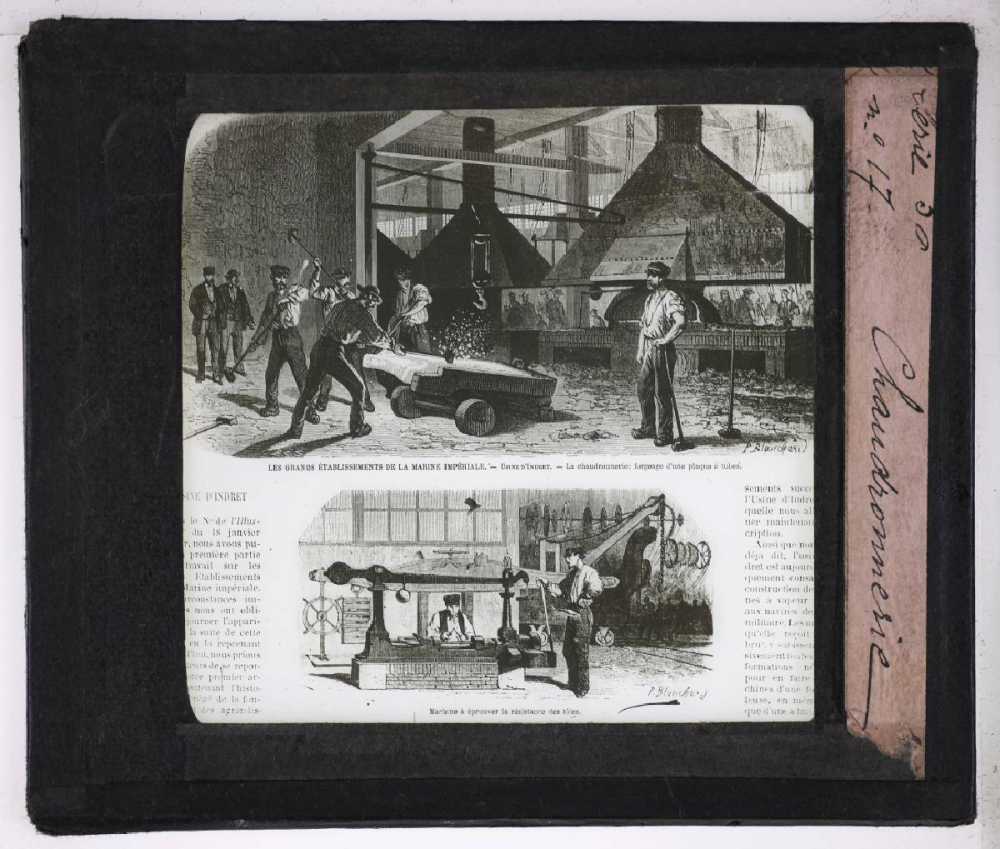 Série 30
n.o 17
Chaudronnerie
P. Blanchard
LES GRANDS ÉTABLISSEMENTS DE LA MARINE IMPÉRIALE. — USINE D'INDRET. — La chaudronnerie: forgeage d'une plaque à tubes.
INE D'INDRET
le No de l'Illus-
du 18 janvier
r, nous avons pu-
première partie
travail sur les
Etablissements
Marine impériale.
irconstances im-
s nous ont obli-
ourner l'appari-
la suite de cette
en la reprenant
d'hui, nous prions
teurs de se repor-
otre premier ar-
ntenant l'histo-
de la fon-
des agrandis-
P. Blanchard
Machine à éprouver la résistance des tôles.
sements succe
l'Usine d'Indre
quelle nous al
ner maintenan
cription.
Ainsi que nou
déjà dit, l'usi
dret est aujourd
quement consa
construction de
nes à vapeur
aux navires de
militaire. Les m
qu'elle reçoit
brut y subissen
sivement toutes
formations né
pour en faire
chines d'une fo
leuse, en mêm
que d'une adm